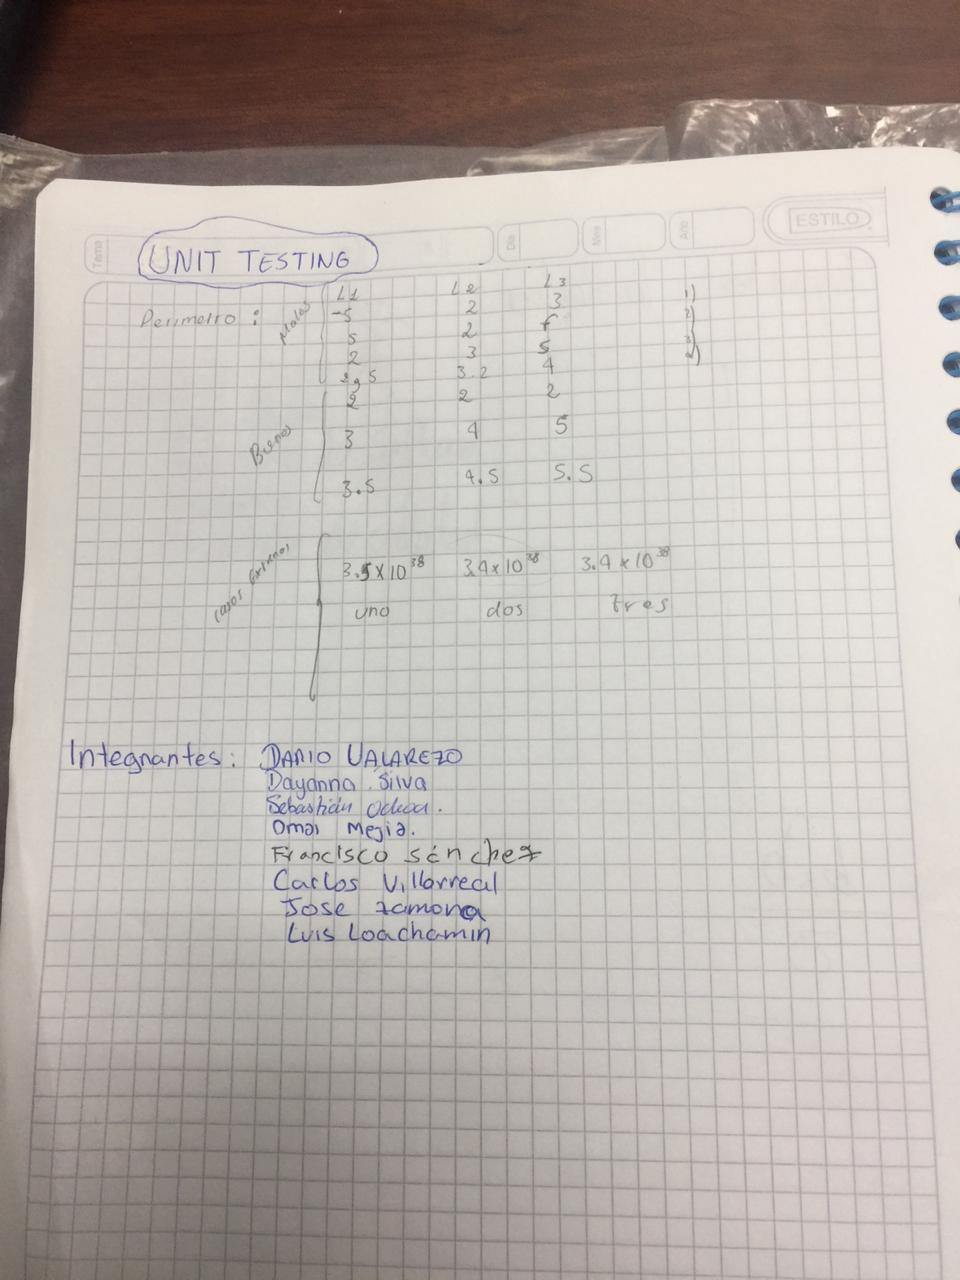 ESTILO
Tema Dia Mes Año
UNIT TESTING
Perimetro :
Malos
L1 L2 L3
-5 2 3 1)
5 2 f
2 3 5
3.2 4
Buenos
2 2 2
3 4 5
3.5 4.5 5.5
Casos Extremos
3.5 x 10^38 3.4 x 10^38 3.4 x 10^38
uno dos tres
Integnantes: DARIO VALAREZO
Dayanna Silva
Sebastián Ochoa.
Omar Mejia.
Francisco Sánchez
Carlos Villarreal
Jose Zamora
Luis Loachamin